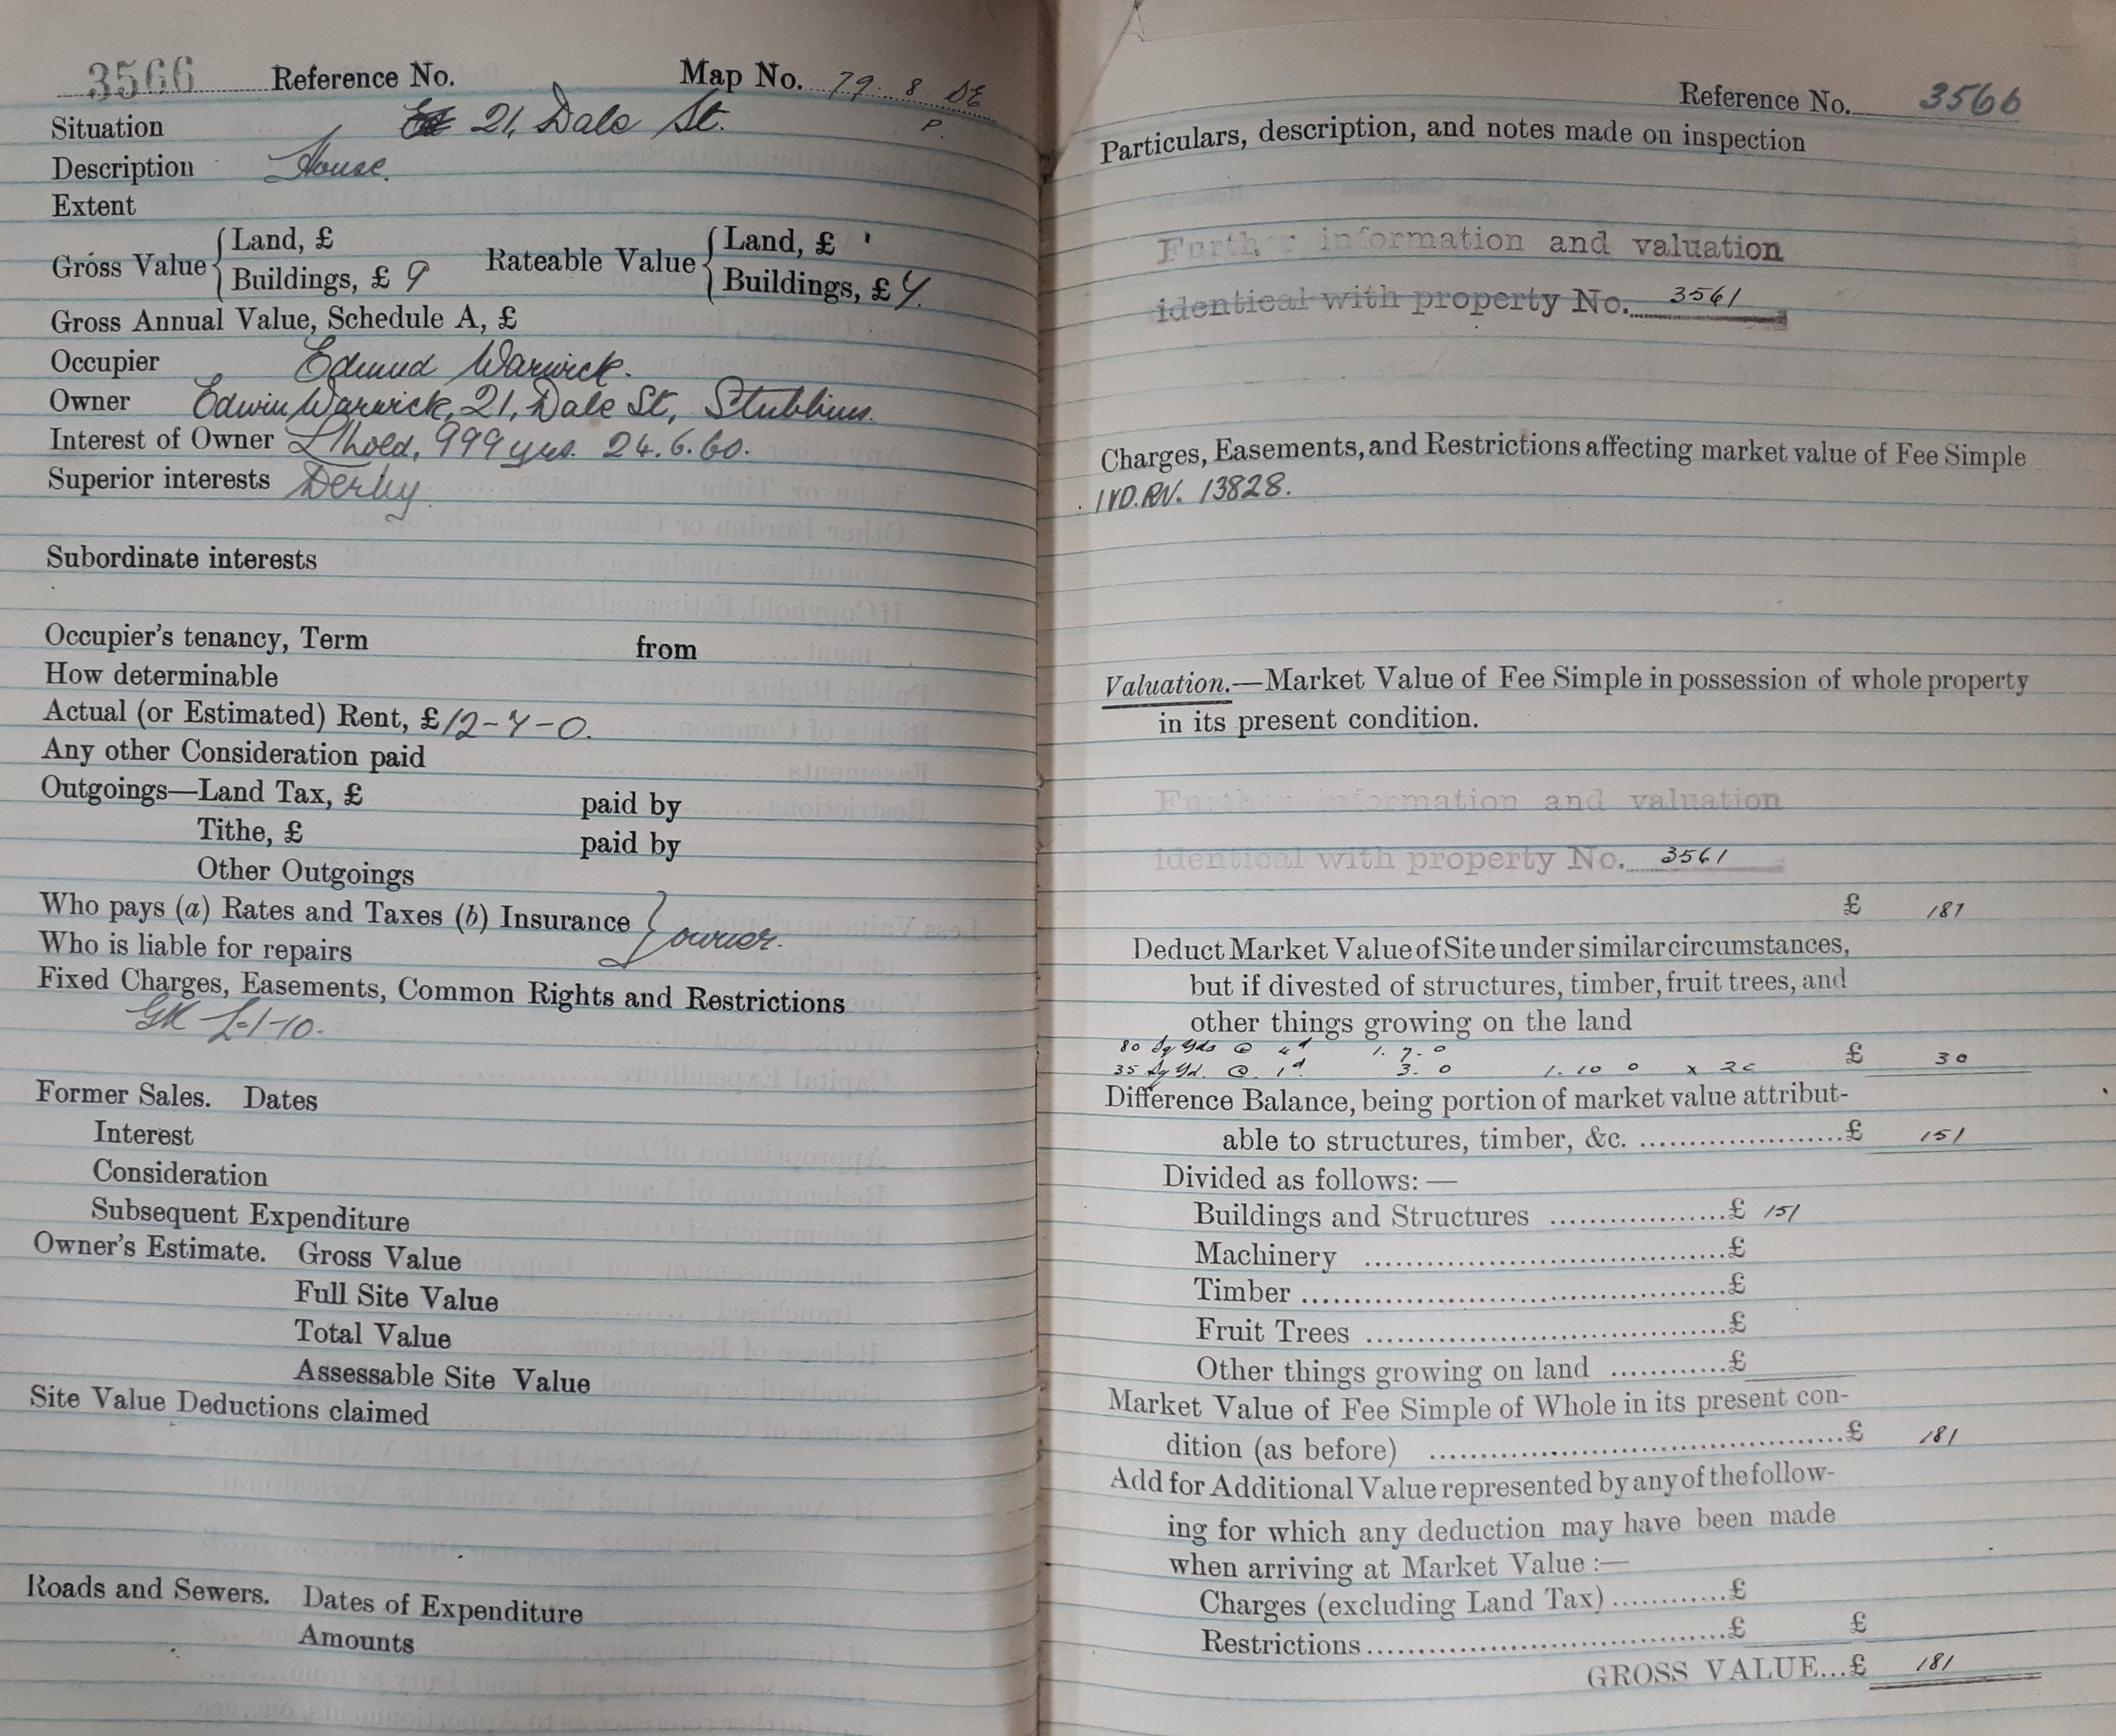 3566 Reference No. Map No. 79. 8 DE
P.
Situation 21, Dale St.
Description House.
Extent
Gross Value { Land, £ Rateable Value { Land, £
Buildings, £ 9 Buildings, £ 7.
Gross Annual Value, Schedule A, £
Occupier Edmund Warwick.
Owner Edwin Warwick, 21, Dale St, Stubbins.
Interest of Owner L'hold, 999 yrs. 24.6.60.
Superior interests Derby
Subordinate interests
Occupier's tenancy, Term from
How determinable
Actual (or Estimated) Rent, £ 12-7-0.
Any other Consideration paid
Outgoings—Land Tax, £ paid by
Tithe, £ paid by
Other Outgoings
Who pays (a) Rates and Taxes (b) Insurance } owner.
Who is liable for repairs
Fixed Charges, Easements, Common Rights and Restrictions
GR £1-10.
Former Sales. Dates
Interest
Consideration
Subsequent Expenditure
Owner's Estimate. Gross Value
Full Site Value
Total Value
Assessable Site Value
Site Value Deductions claimed
Roads and Sewers. Dates of Expenditure
Amounts
Reference No. 3566
Particulars, description, and notes made on inspection
Further information and valuation
identical with property No. 3561
Charges, Easements, and Restrictions affecting market value of Fee Simple
IVD.RV. 13828.
Valuation.—Market Value of Fee Simple in possession of whole property
in its present condition.
Further information and valuation
identical with property No. 3561
£ 181
Deduct Market Value of Site under similar circumstances,
but if divested of structures, timber, fruit trees, and
other things growing on the land
80 Sq Yds @ 4d 1. 7. 0 £ 30
35 Sq Yd. @ 1d. 3. 0 1. 10 0 x 20
Difference Balance, being portion of market value attribut-
able to structures, timber, &c. £ 151
Divided as follows:—
Buildings and Structures £ 151
Machinery £
Timber £
Fruit Trees £
Other things growing on land £
Market Value of Fee Simple of Whole in its present con-
dition (as before) £ 181
Add for Additional Value represented by any of the follow-
ing for which any deduction may have been made
when arriving at Market Value :—
Charges (excluding Land Tax) £
Restrictions £ £
GROSS VALUE...£ 181